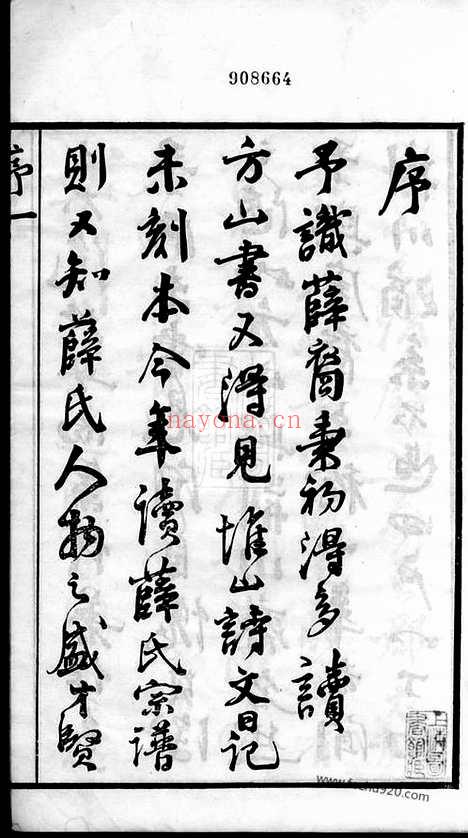 908664
序
予識薛裔秉初得多讀
方山書又得見堆山詩文日記
未刻本今年讀薛氏宗譜
則又知薛氏人物之盛才賢
序一
nayona.cn